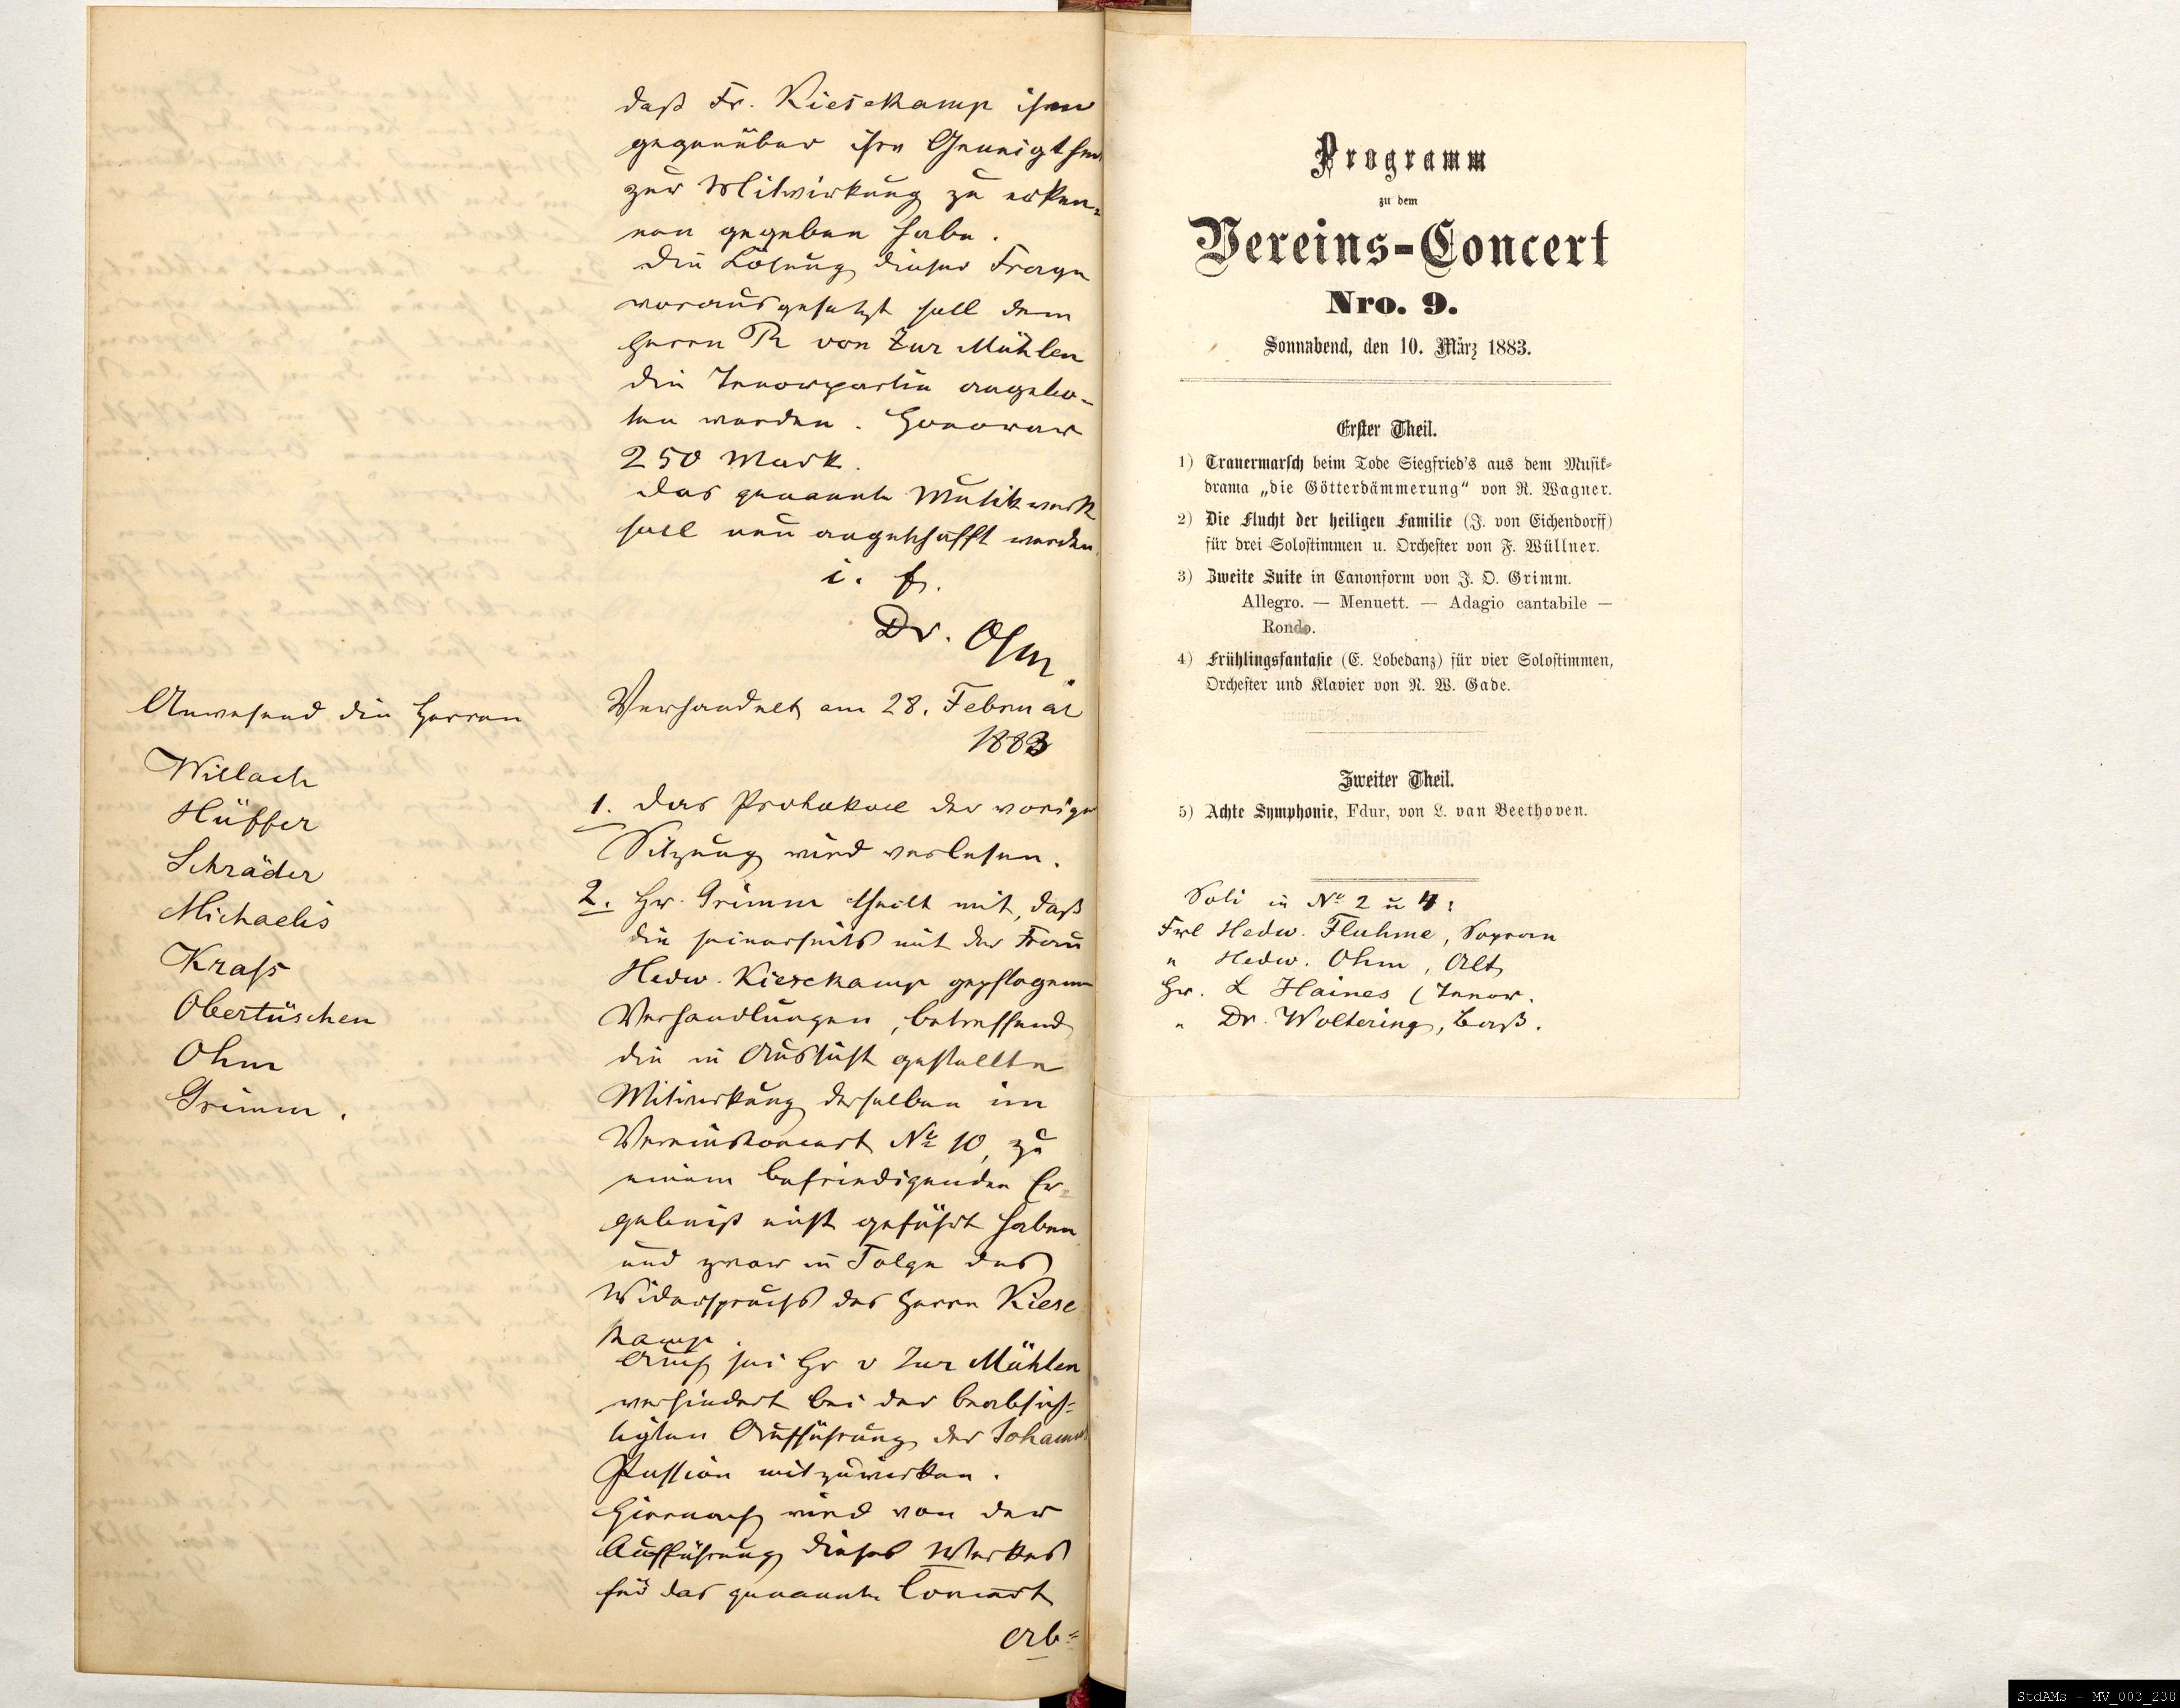 daß Fr. Kiesekamp ihm
gegenüber ihre Geneigthei
zur Mitwirkung zu erken-
nen gegeben habe.
Die Lösung dieser Frage
vorausgesetzt soll dem
Herrn R von Zur Mühlen
die Tenorpartie angebo-
ten werden. Honorar
250 Mark.
Das genannte Musikwerk
soll neu angeschafft werden.
i. f.
Dr. Ohm.
Anwesend die Herren
Willach
Hüffer
Schräder
Michaelis
Krass
Obertüschen
Ohm
Grimm.
Verhandelt am 28. Februar
1883
1. Das Protokoll der vorigen
Sitzung wird verlesen.
2. Hr. Grimm theilt mit, daß
die seinerseits mit der Frau
Hedw. Kiesekamp gepflogenen
Verhandlungen, betreffend
die in Aussicht gestellte
Mitwirkung derselben im
Vereinskoncert No 10, zu
einem befriedigenden Er-
gebniß nicht geführt haben
und zwar in Folge des
Widerspruchs des Herrn Kiese
kamp.
Auch sei Hr v Zur Mühlen
verhindert bei der beabsich-
tigten Aufführung der Johannes
Passion mitzuwirken.
Hiernach wird von der
Aufführung dieses Werkes
für das genannte Concert
ab-
Programm
zu dem
Vereins-Concert
Nro. 9.
Sonnabend, den 10. März 1883.
Erster Theil.
1) Trauermarsch beim Tode Siegfried's aus dem Musik-
drama „die Götterdämmerung" von R. Wagner.
2) Die Flucht der heiligen Familie (J. von Eichendorff)
für drei Solostimmen u. Orchester von F. Wüllner.
3) Zweite Suite in Canonform von J. O. Grimm.
Allegro. — Menuett. — Adagio cantabile —
Rondo.
4) Frühlingsfantasie (E. Lobedanz) für vier Solostimmen,
Orchester und Klavier von N. W. Gade.
Zweiter Theil.
5) Achte Symphonie, Fdur, von L. van Beethoven.
Soli in No 2 u 4:
Frl Hedw. Fluhme, Sopran
" Hedw. Ohm, Alt,
Hr. L Haines (Tenor.
" Dr. Woltering, Baß.
StdAMs - MV_003_238